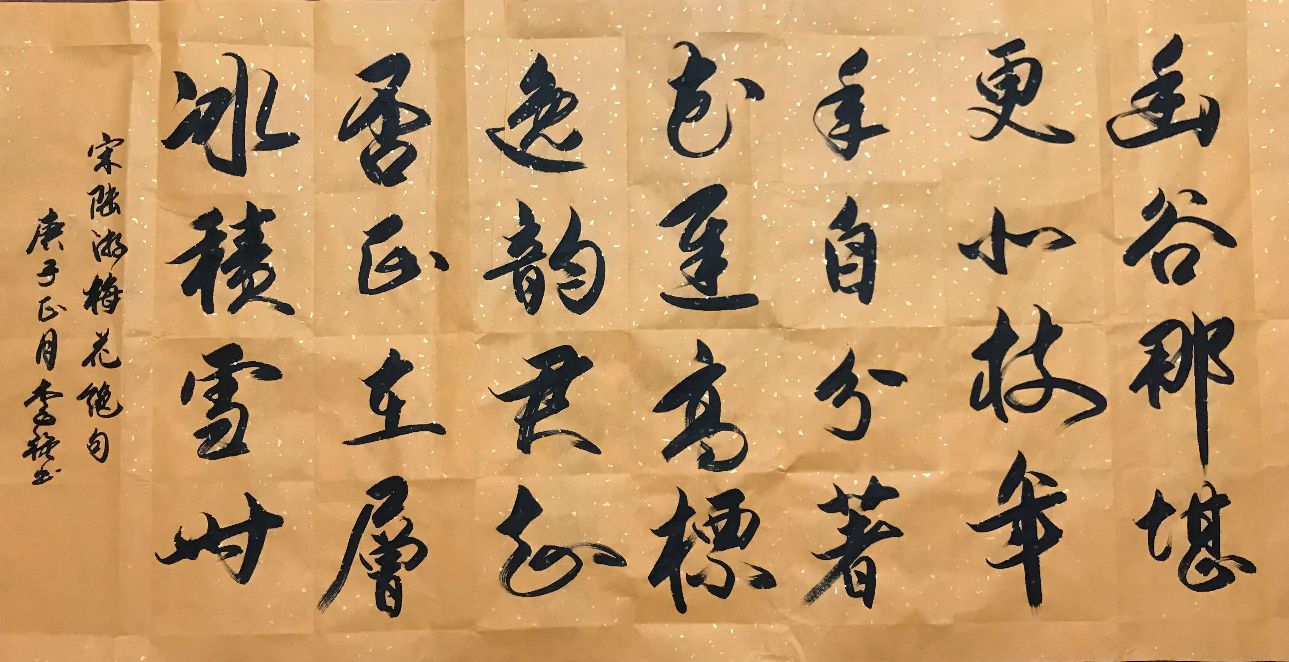 幽谷那堪
更北枝年
年自分著
花遲高標
逸韵君知
否正在層
冰積雪時
宋陸游梅花絕句
庚子正月李书